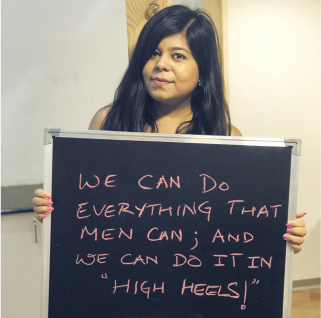 WE CAN DO
EVERYTHING THAT
MEN CAN; AND
WE CAN DO IT IN
"HIGH HEELS!"